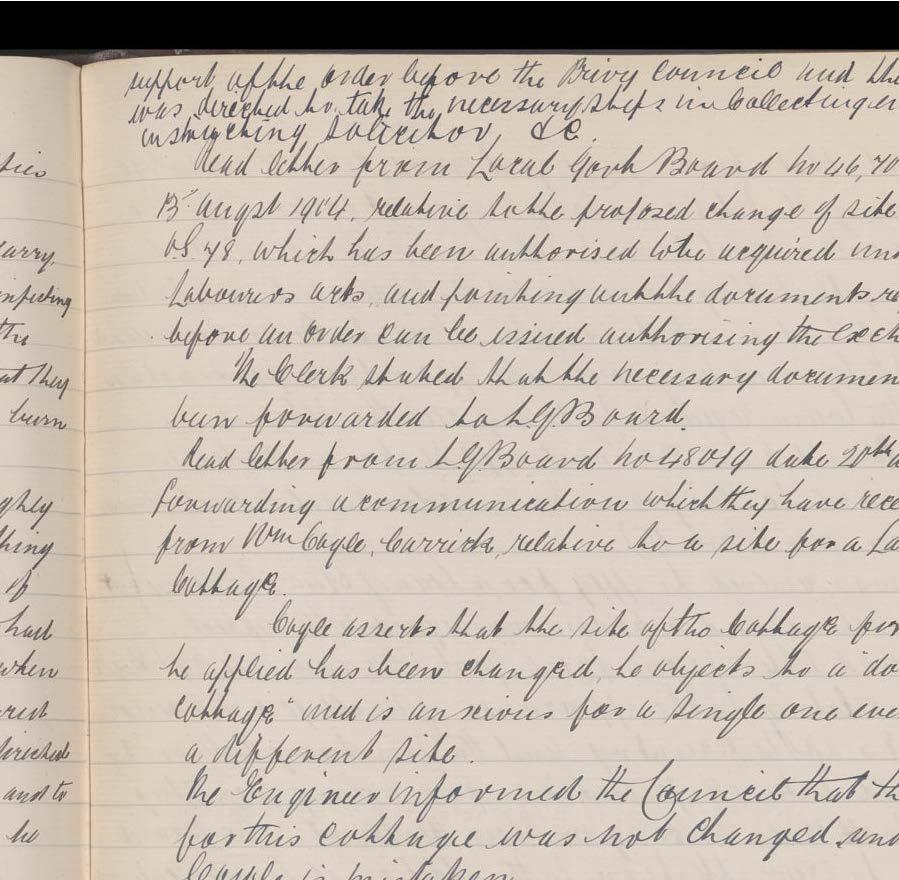 support of the order before the Privy Council and the
was directed to take the necessary steps in Collecting
instructing Solicitor, &c.
Read letter from Local Govt Board No 46,70
13th Augst 1914, relative to the proposed change of site
O.S. 48, which has been authorised to be acquired und
Labourers acts, and pointing out the documents re
before an order can be issued authorising the Exch
The Clerk stated that the necessary documen
been forwarded to LGBoard.
Read letter from LGBoard No 48019 date 20th
forwarding a communication which they have rece
from Wm Coyle, Carrick, relative to a site for a La
Cottage.
Coyle asserts that the site of the Cottage for
he applied has been changed, he objects to a "do
Cottage" and is anxious for a single one eve
a different site.
The Engineer informed the Council that th
for this cottage was not changed and
Coyle is mistaken
arry,
infecting
the
at they
burn
ghly
thing
of
had
when
rest
directed
and to
be